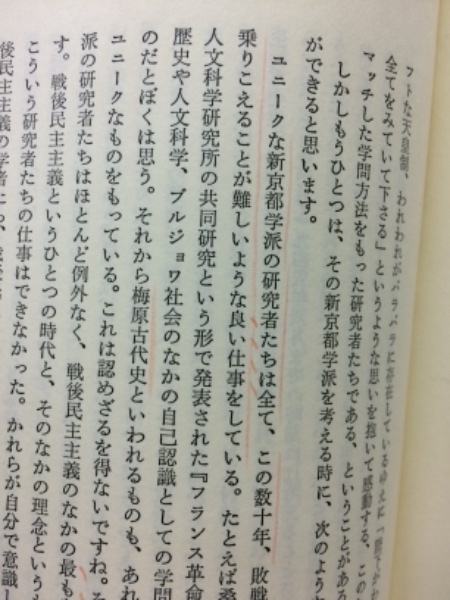 フトな天皇制、われわれがバラバラに存在しているゆえに「黙って
全てをみていて下さる」というような思いを抱いて感動する、この
マッチした学問方法をもった研究者たちである、ということがある
しかもうひとつは、その新京都学派を考える時に、次のような
ができると思います。
ユニークな新京都学派の研究者たちは全て、この数十年、敗戦
乗りこえることが難しいような良い仕事をしている。たとえば桑
人文科学研究所の共同研究という形で発表された『フランス革命
歴史や人文科学、ブルジョワ社会のなかの自己認識としての学問
のだとぼくは思う。それから梅原古代史といわれるものも、あれ
ユニークなものをもっている。これは認めざるを得ないですね。そ
派の研究者たちはほとんど例外なく、戦後民主主義のなかの最も
す。戦後民主主義というひとつの時代と、そのなかの理念というも
こういう研究者たちの仕事はできなかった。かれらが自分で意識し
後民主主義の学者たち、